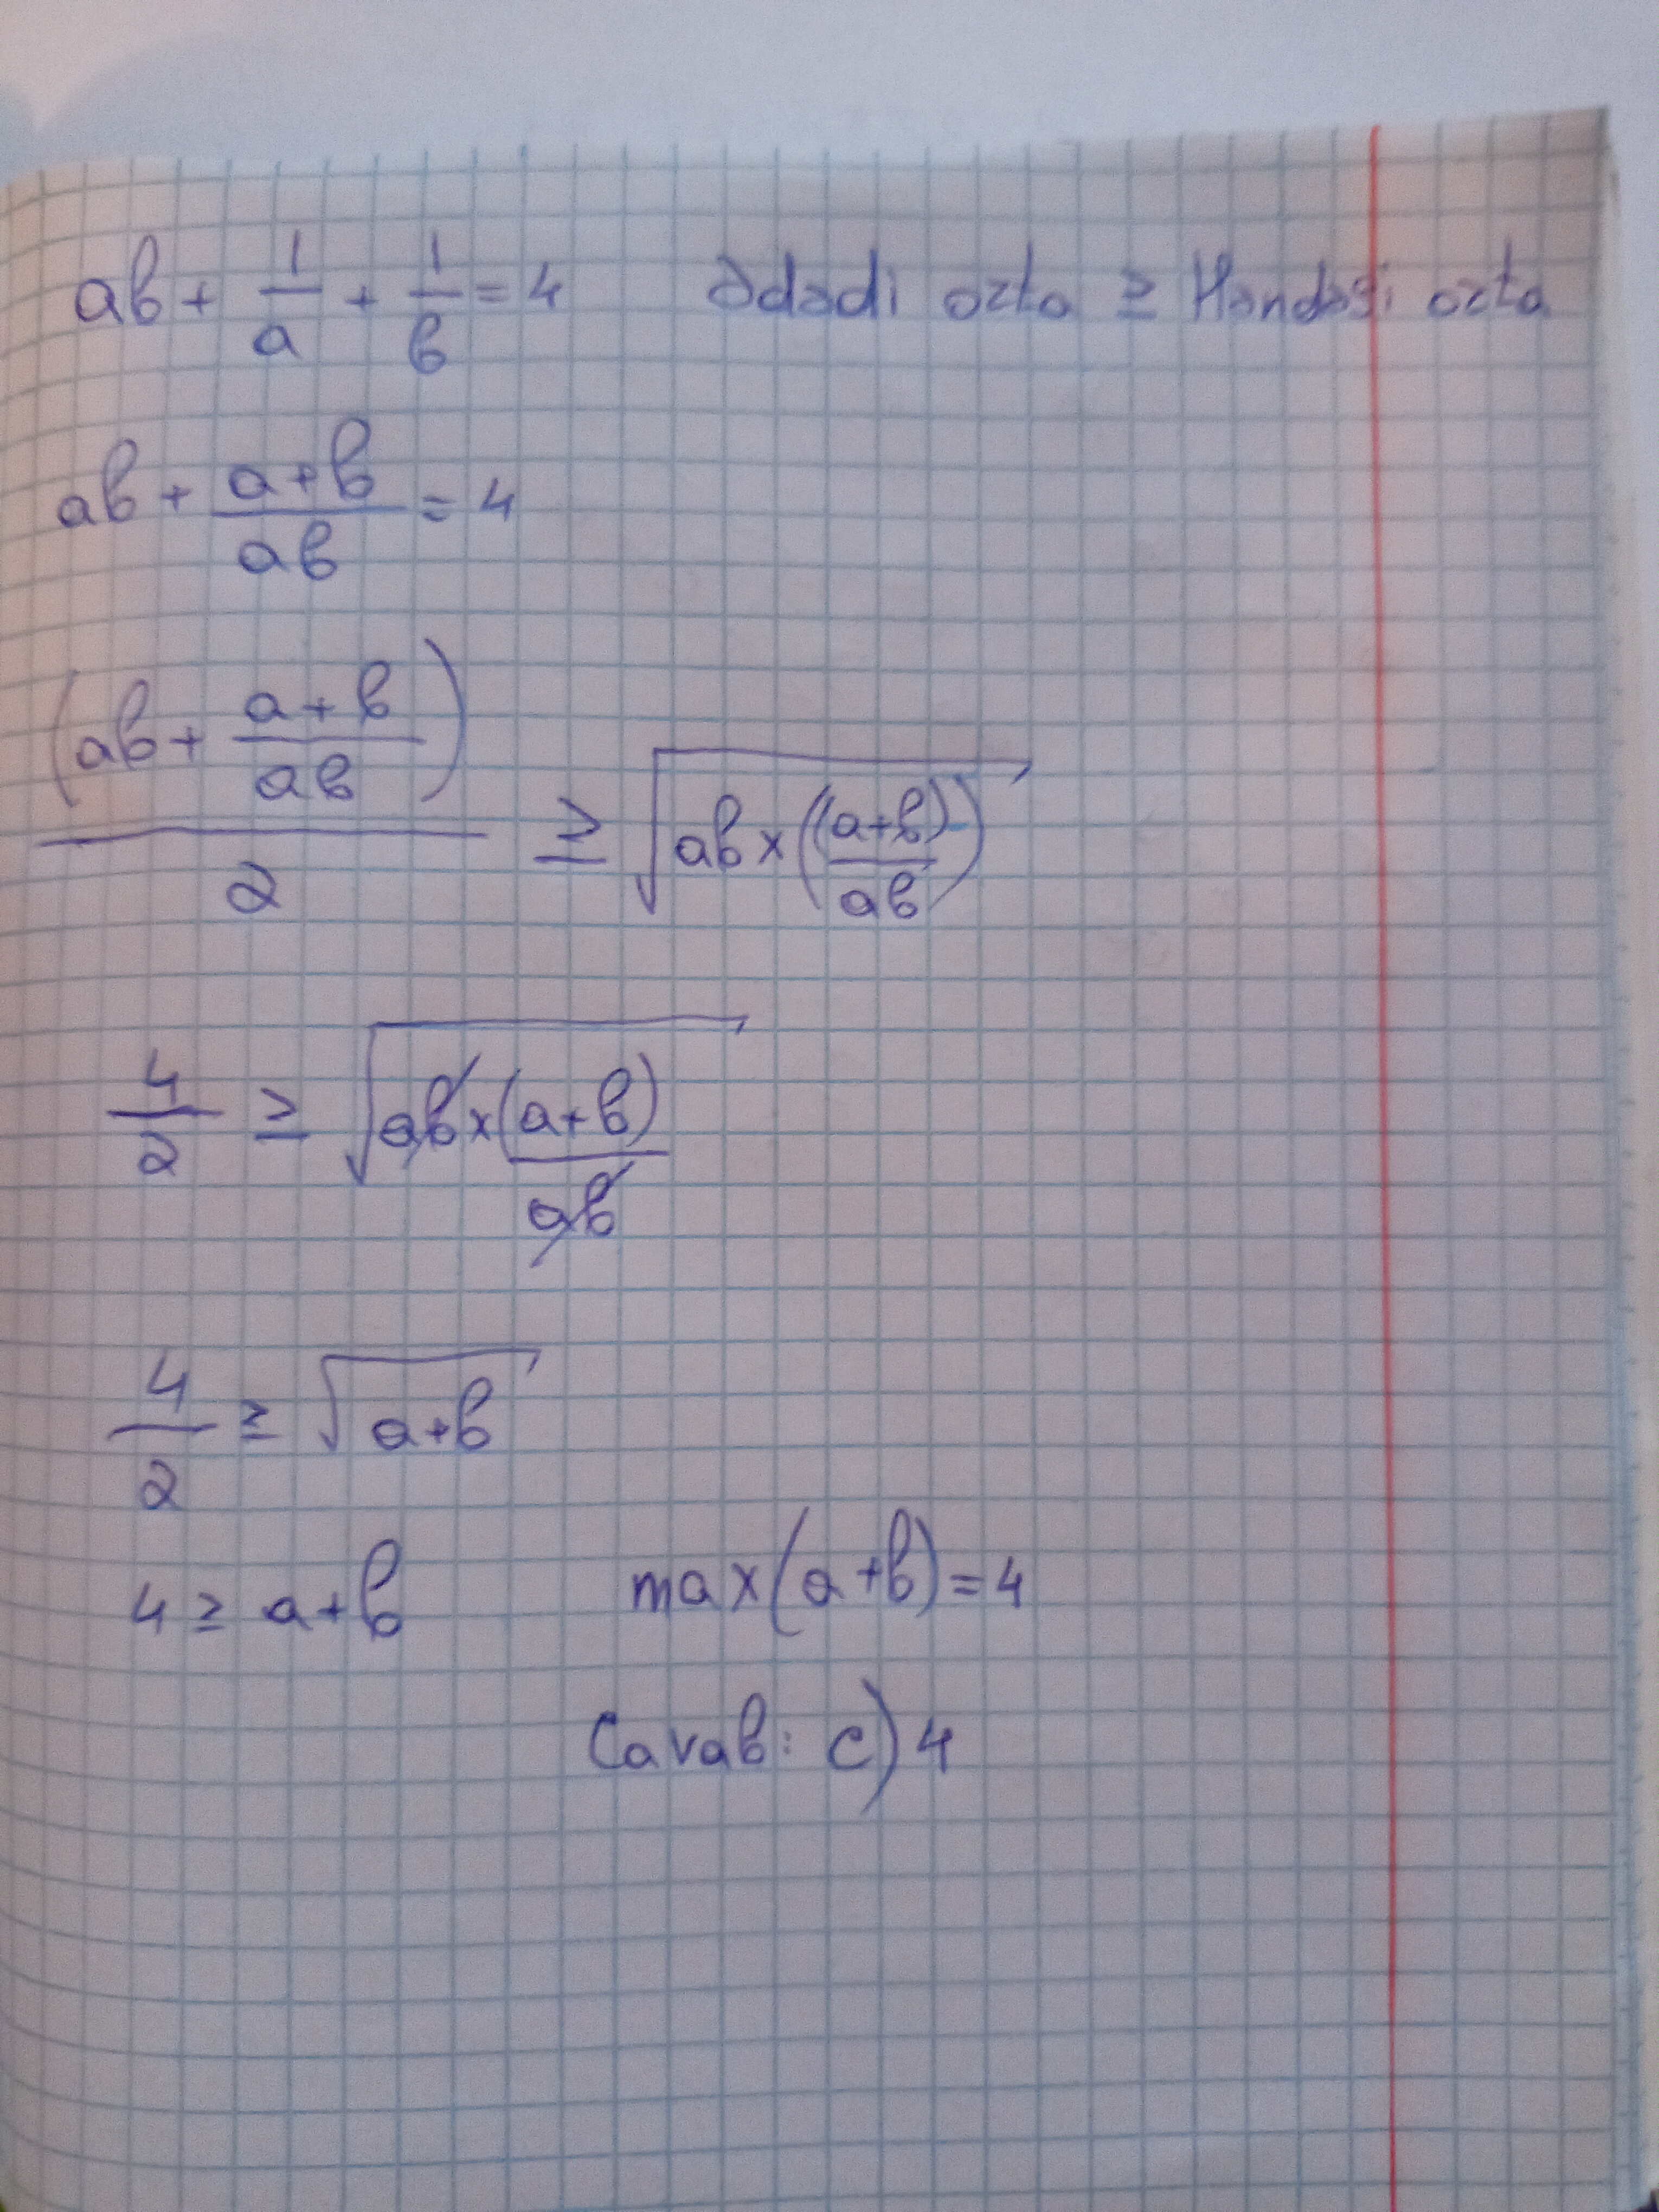 ab + 1/a + 1/b = 4   Ədədi orta ≥ Həndəsi orta
ab + (a+b)/(ab) = 4
(ab + (a+b)/(ab))/2 ≥ √(ab × ((a+b)/(ab)))
4/2 ≥ √(ab × (a+b)/(ab))
4/2 ≥ √(a+b)
4 ≥ a+b   max(a+b) = 4
Cavab: c) 4